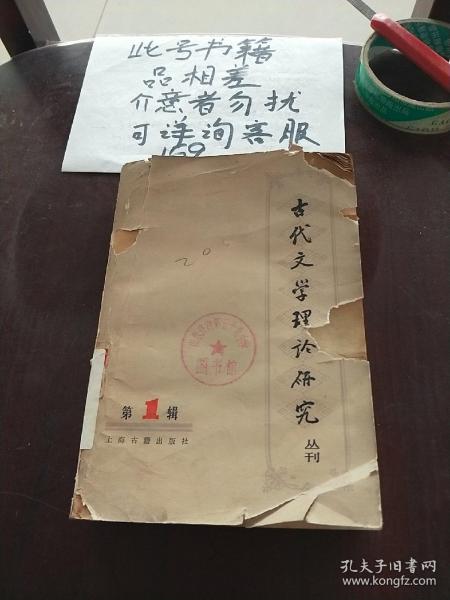 此号书籍
品相差
介意者勿扰
可详询客服
169
古代文学理论研究
丛刊
200
图书馆
第1辑
上海古籍出版社
孔夫子旧书网
www.kongfz.com